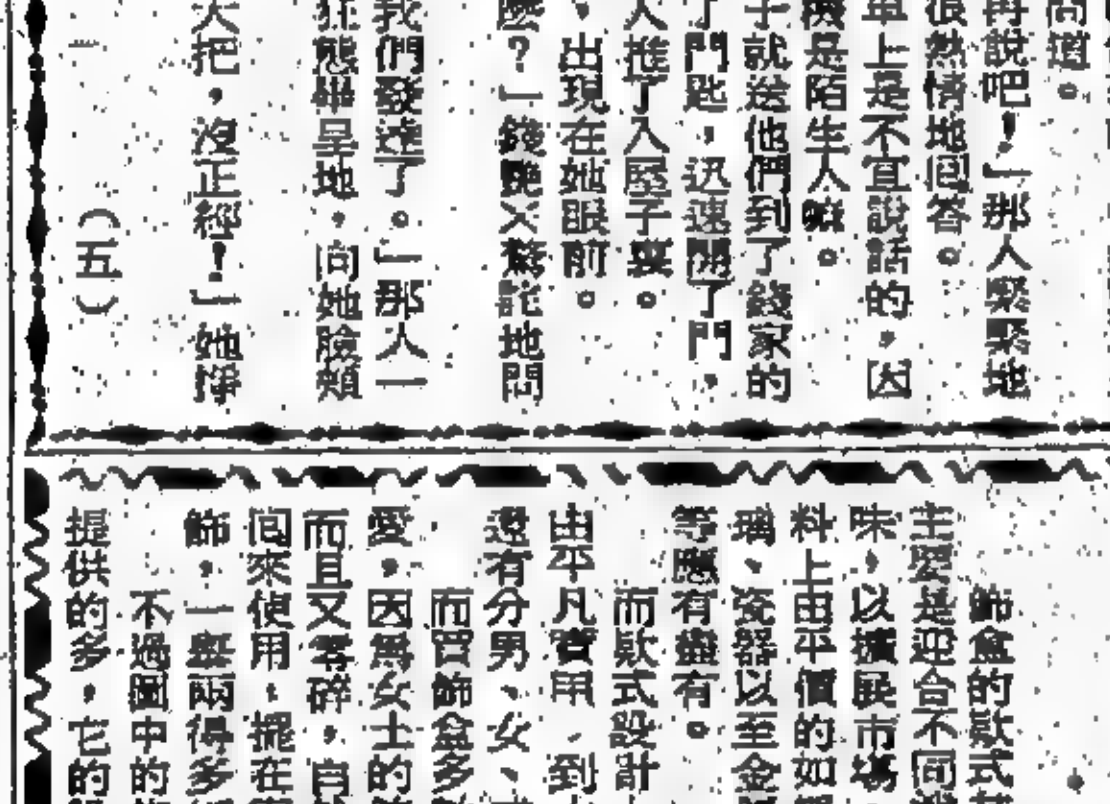 問道。
再說吧！」那人緊緊地
很熱情地回答。
車上是不宜說話的，因
機是陌生人嘛。
子就送他們到了錢家的
了門匙，迅速開了門，
人推了入屋子裏。
，出現在她眼前。
麼？」錢艷又驚詫地問
我們發達了。」那人一
狂態畢呈地，向她臉頰
大把，沒正經！」她掙
（五）
飾盒的款式
主要是迎合不同
味，以擴展市場
料上由平價的如
璃、瓷器以至金
等應有盡有。
而款式設計
由平凡實用，到
還有分男、女、
而買飾盒多
愛，因為女士的
而且又零碎，自
回來使用，擺在
飾，一舉兩得多
不過圖中的
提供的多，它的